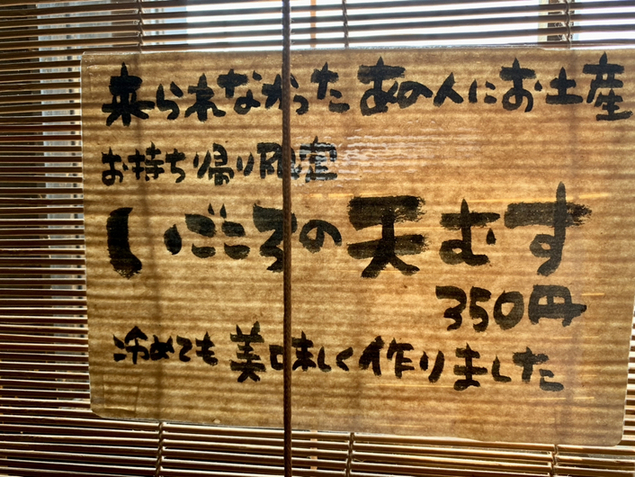 来られなかったあの人にお土産
お持ち帰り限定
いごころの天むす
350円
冷めても美味しく作りました